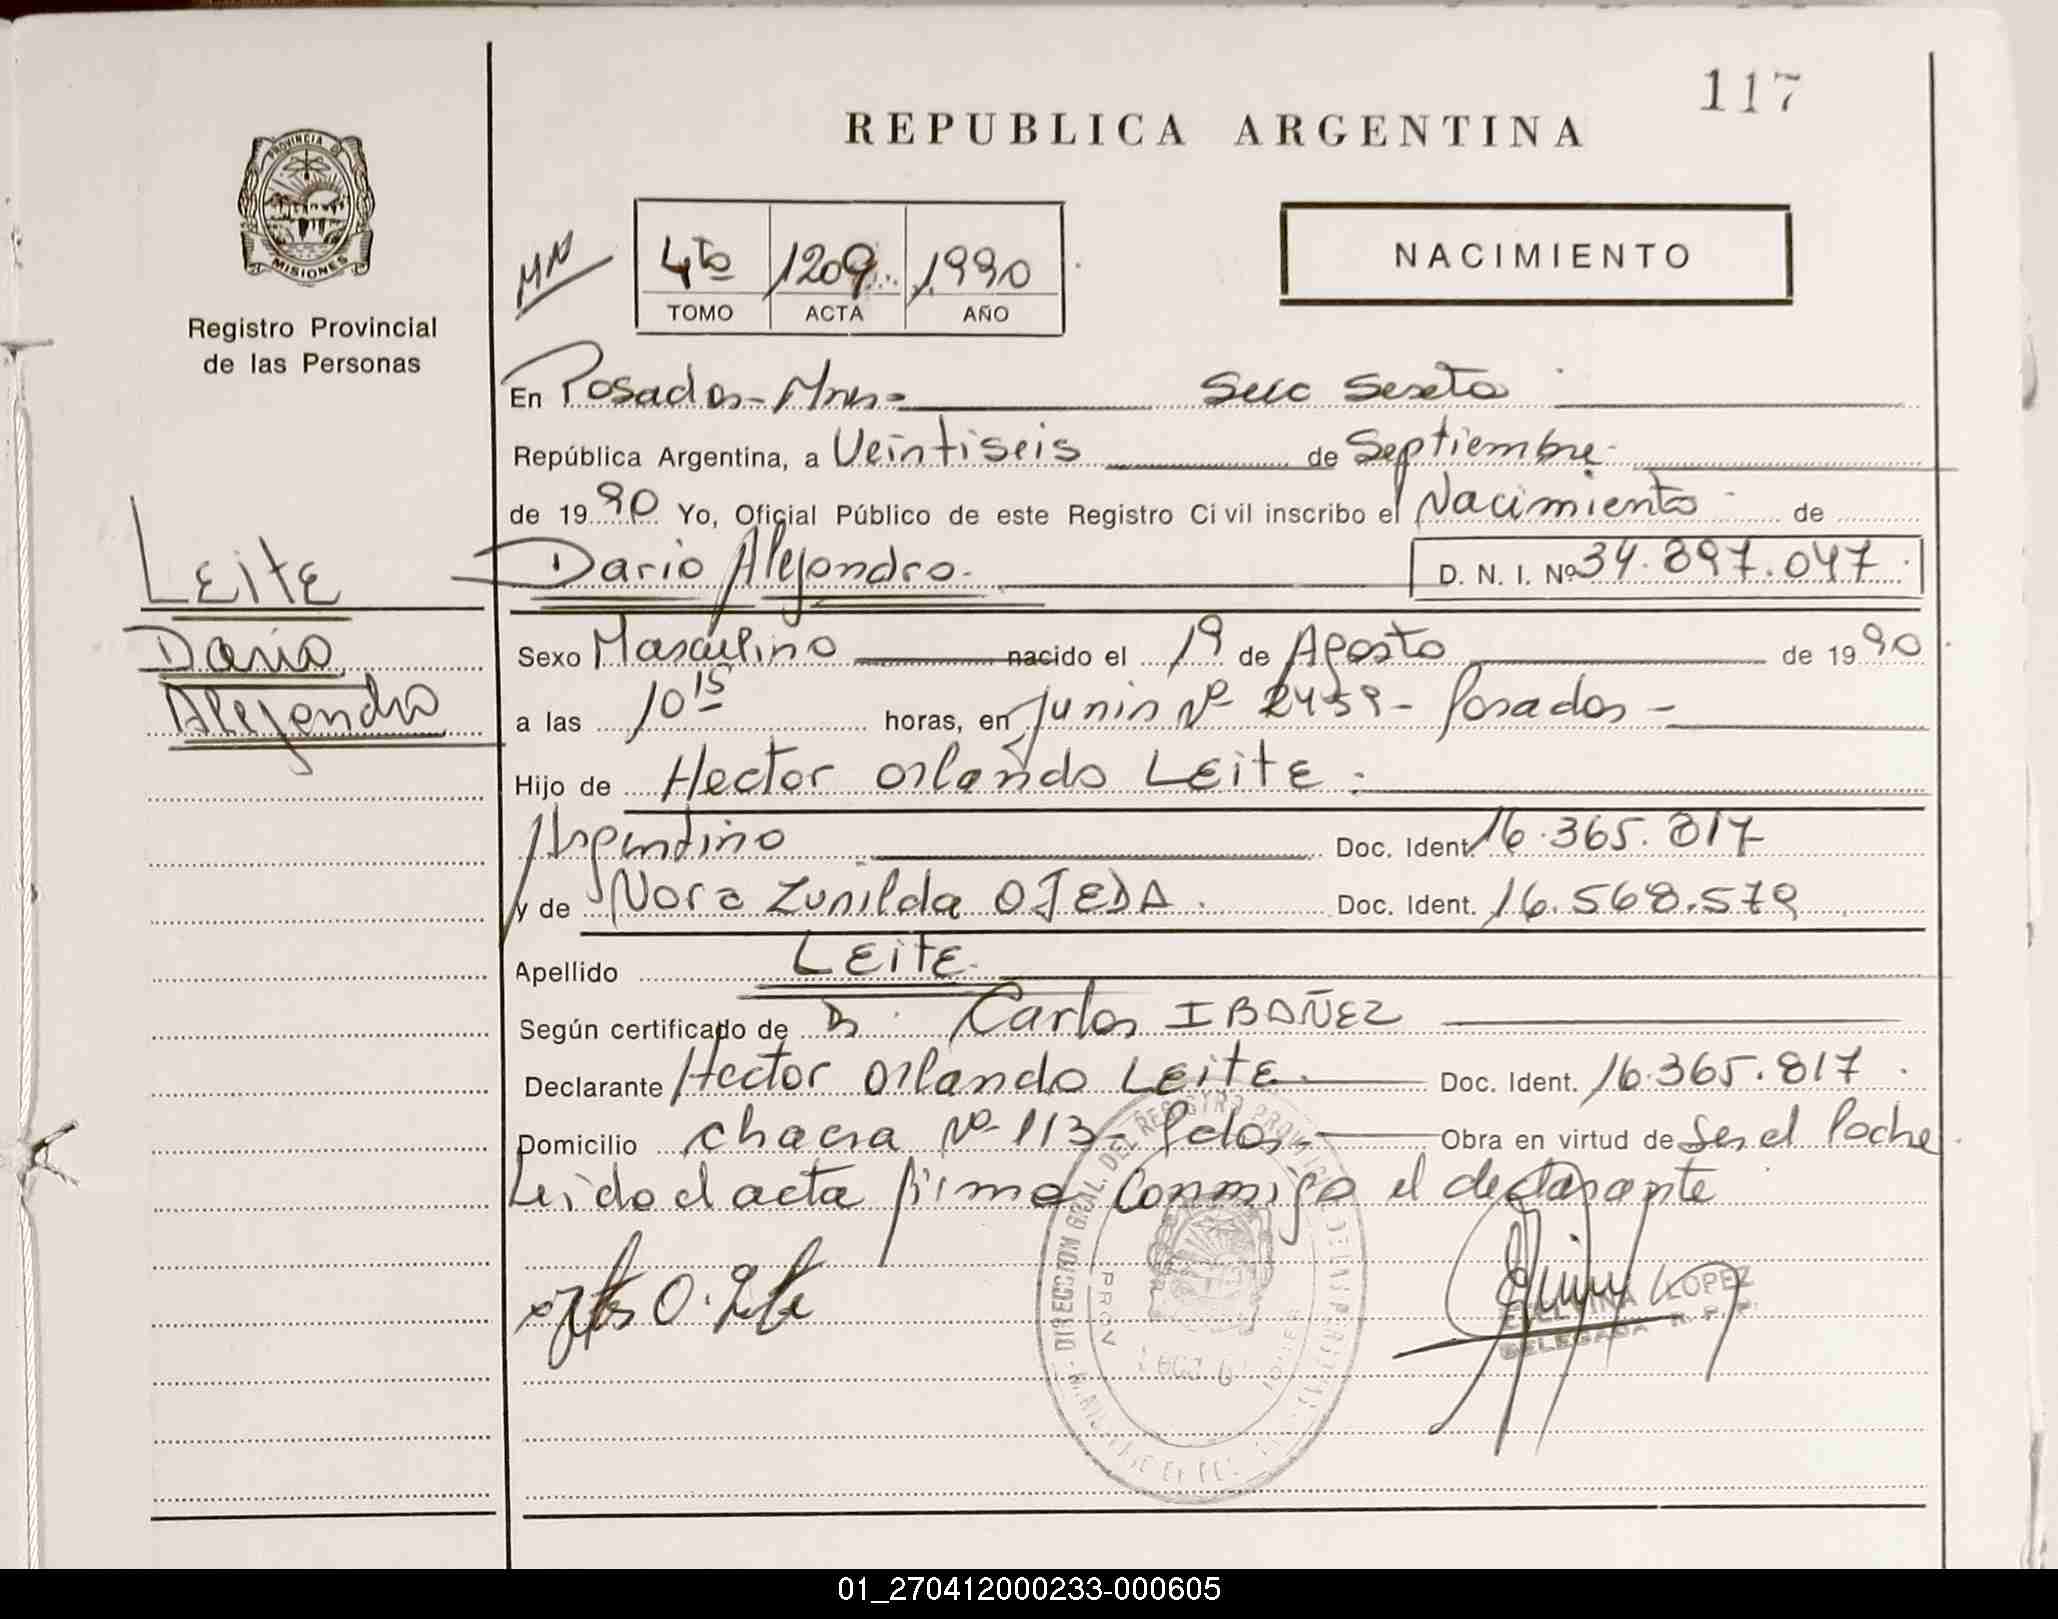 117
REPUBLICA ARGENTINA
PROVINCIA DE
MISIONES
Registro Provincial
de las Personas
4to 1209 1990
TOMO ACTA AÑO
NACIMIENTO
En Posadas - Mnes - Secc Sexta
República Argentina, a Veintiseis de Septiembre
de 1990 Yo, Oficial Público de este Registro Civil inscribo el Nacimiento de
Leite
Dario
Alejandro
Dario Alejandro D. N. I. Nº 34.897.047
Sexo Masculino nacido el 19 de Agosto de 1990
a las 10 15 horas, en Junin Nº 2459 - Posadas -
Hijo de Hector Orlando LEITE
Argentino Doc. Ident. 16.365.817
y de Nora Zunilda OJEDA Doc. Ident. 16.568.579
Apellido LEITE
Según certificado de Dr Carlos IBAÑEZ
Declarante Hector Orlando LEITE Doc. Ident. 16.365.817
Domicilio chacra Nº 113 - Pdas - Obra en virtud de Ser el Padre
Leido el acta firma conmigo el declarante
DIRECCION GRAL. DEL REGISTRO PROVINCIAL DE LAS PERSONAS
LOPEZ
DELEGADA R. P. P.
01_270412000233-000605